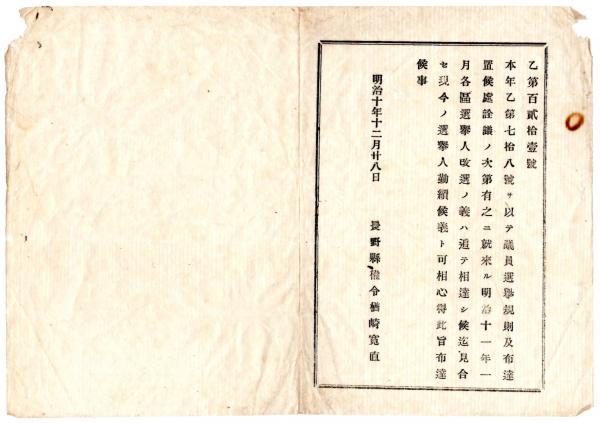 乙第百貳拾壹號
本年乙第七拾八號ヲ以テ議員選擧規則及布達
置候處詮議ノ次第有之ニ就來ル明治十一年一
月各區選擧人改選ノ義ハ追テ相達シ候迄見合
セ現今ノ選擧人勤續候義ト可相心得此旨布達
候事
明治十年十二月廿八日
長野縣權令楢崎寛直